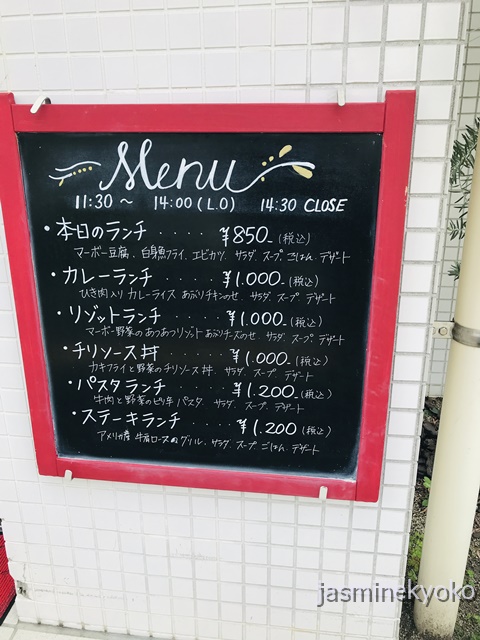 Menu
11:30 ～ 14:00 (L.O) 14:30 CLOSE
・本日のランチ ・・・・ ¥850- (税込)
マーボー豆腐、白身魚フライ、エビカツ、サラダ、スープ、ごはん、デザート
・カレーランチ ・・・・ ¥1.000- (税込)
ひき肉入りカレーライス あぶりチキンのせ、サラダ、スープ、デザート
・リゾットランチ ・・・・ ¥1.000- (税込)
マーボー野菜のあつあつリゾット あぶりチーズのせ、サラダ、スープ、デザート
・チリソース丼 ・・・・ ¥1.000- (税込)
カキフライと野菜のチリソース丼、サラダ、スープ、デザート
・パスタランチ ・・・・ ¥1.200- (税込)
牛肉と野菜のピリ辛パスタ、サラダ、スープ、デザート
・ステーキランチ ・・・ ¥1.200 (税込)
アメリカ産 牛肩ロースのグリル、サラダ、スープ、ごはん、デザート
jasminekyoko